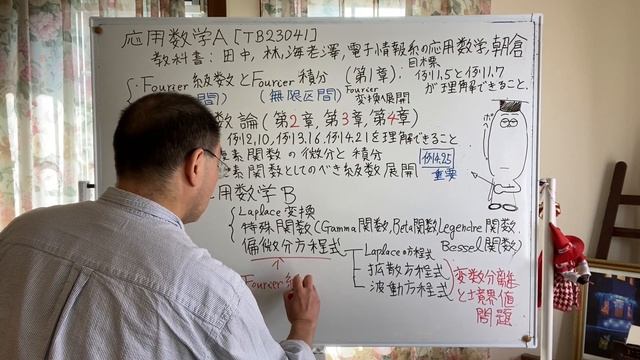 応用数学A [TB23041]
教科書：田中, 林, 海老澤, 電子情報系の応用数学, 朝倉
Fourier級数とFourier積分 (第1章):
間) (無限区間) Fourier変換へ展開
目標
例1.5と例1.7
が理解できること.
数論 (第2章, 第3章, 第4章)
例2,10, 例3.16, 例4.21を理解できること
素関数の微分と積分
素関数としてのべき級数展開
例4.25
重要
用数学B
Laplace変換
特殊関数 (Gamma関数, Beta関数, Legendre関数,
Bessel関数)
偏微分方程式
Laplaceの方程式
拡散方程式
波動方程式
変数分離
と境界値
問題
↑
Fourier 級